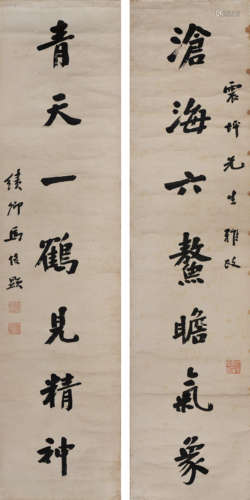 震坪先生雅政
滄海六鰲瞻氣象
青天一鶴見精神
績卿馬佐顯